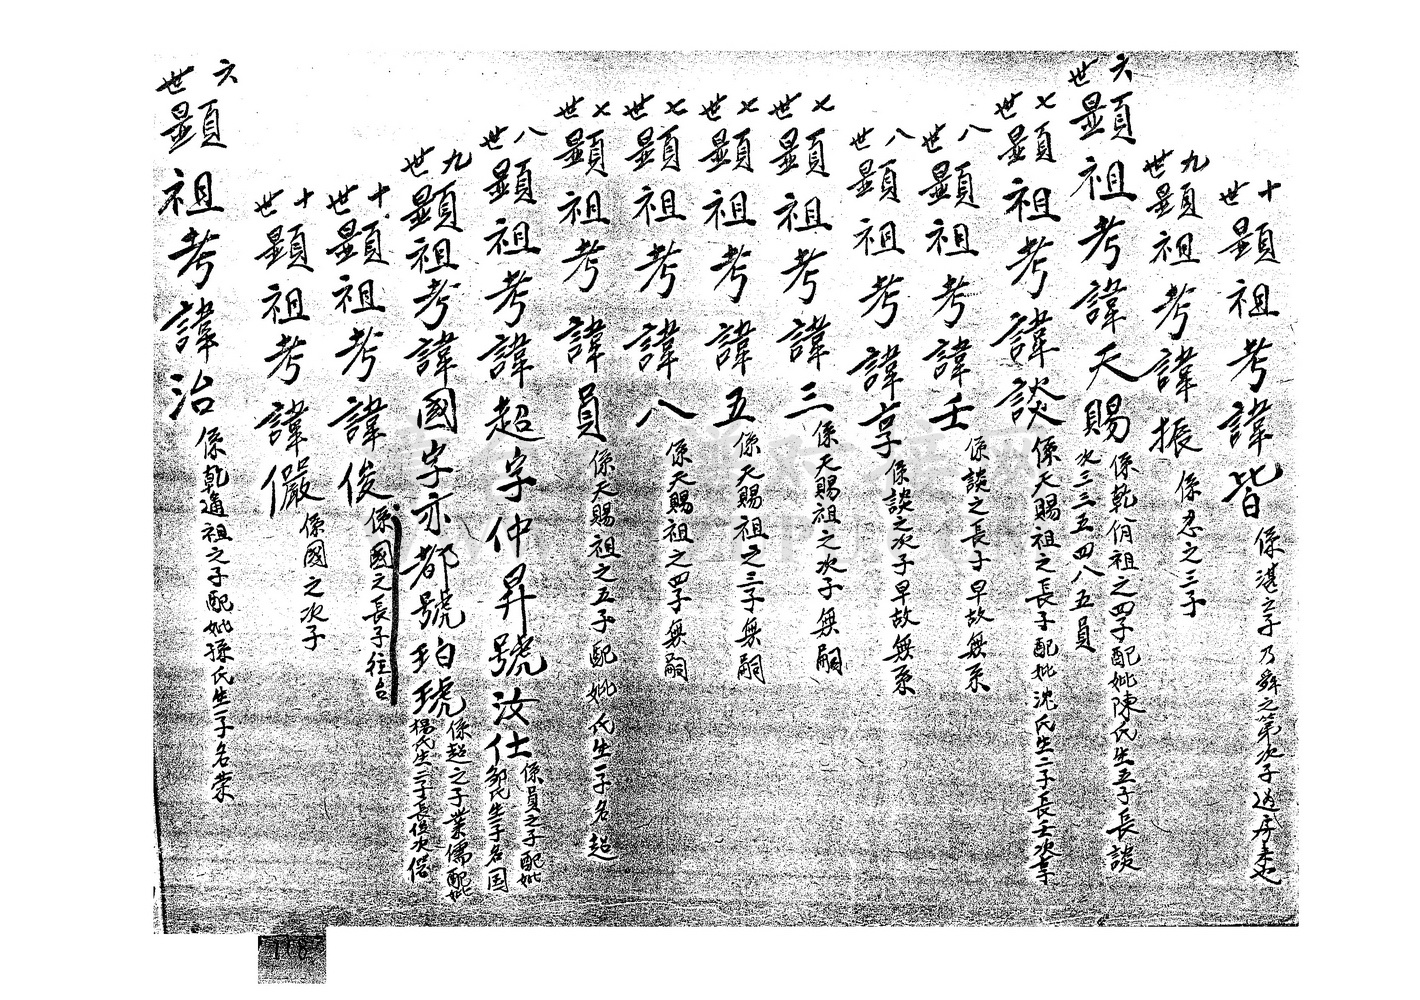 十世顯祖考諱皆 係湛之子乃舜之第次子
九世顯祖考諱振 係忍之三子
六世顯祖考諱天賜 係乾用祖之四子配妣陳氏生五子長談
次三三五四八五員
七世顯祖考諱談 係天賜祖之長子配妣沈氏生二子長壬次享
八世顯祖考諱壬 係談之長子早故無系
八世顯祖考諱享 係談之次子早故無系
七世顯祖考諱三 係天賜祖之次子無嗣
七世顯祖考諱五 係天賜祖之三子無嗣
七世顯祖考諱八 係天賜祖之四子無嗣
七世顯祖考諱員 係天賜祖之五子配妣 氏生一子名超
八世顯祖考諱超字仲昇號汝仕 係員之子配妣
鄒氏生一子名国
九世顯祖考諱國字亦都號珀琥 係超之子業儒配妣
楊氏生二子長俊次
十世顯祖考諱俊 係國之長子往台
十世顯祖考諱儼 係國之次子
六世顯祖考諱治 係乾進祖之子配妣孫氏生一子名榮
118